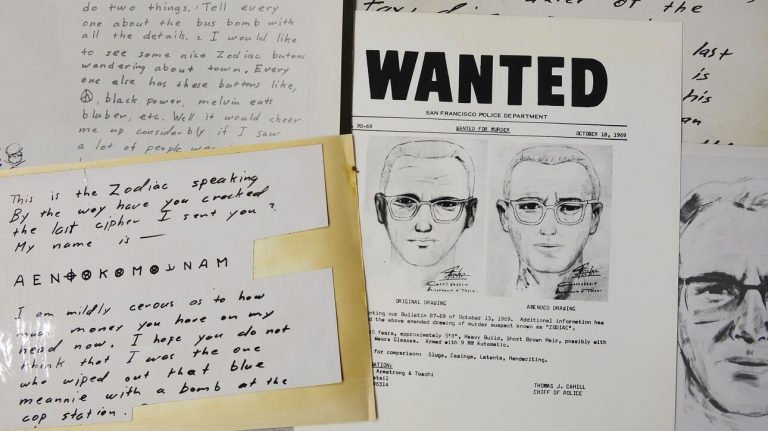 do two things. 1 Tell every
one about the bus bomb with
all the details. 2 I would like
to see some nice Zodiac butons
wandering about town. Every
one else has these buttons like,
black power, melvin eats
bluber, etc. Well it would cheer
me up considerbly if I saw
a lot of people
This is the Zodiac speaking
By the way have you cracked
the last cipher I sent you?
My name is —
A E N ⊕ ⊗ K ⊗ M ⊗ ⅃ N A M
I am mildly cerous as to how
much money you have on my
head now. I hope you do not
think that I was the one
who wiped out that blue
meannie with a bomb at the
cop station.
WANTED
SAN FRANCISCO POLICE DEPARTMENT
90-69 WANTED FOR MURDER OCTOBER 18, 1969
ORIGINAL DRAWING AMENDED DRAWING
our Bulletin 87-69 of October 13, 1969. Additional information has
the above amended drawing of murder suspect known as "ZODIAC".
Years, approximately 5'8", Heavy Build, Short Brown Hair, possibly with
Wears Glasses. Armed with 9 MM Automatic.
for comparison: Slugs, Casings, Latents, Handwriting.
Armstrong & Toschi
THOMAS J. CAHILL
CHIEF OF POLICE
of the
last
is
his